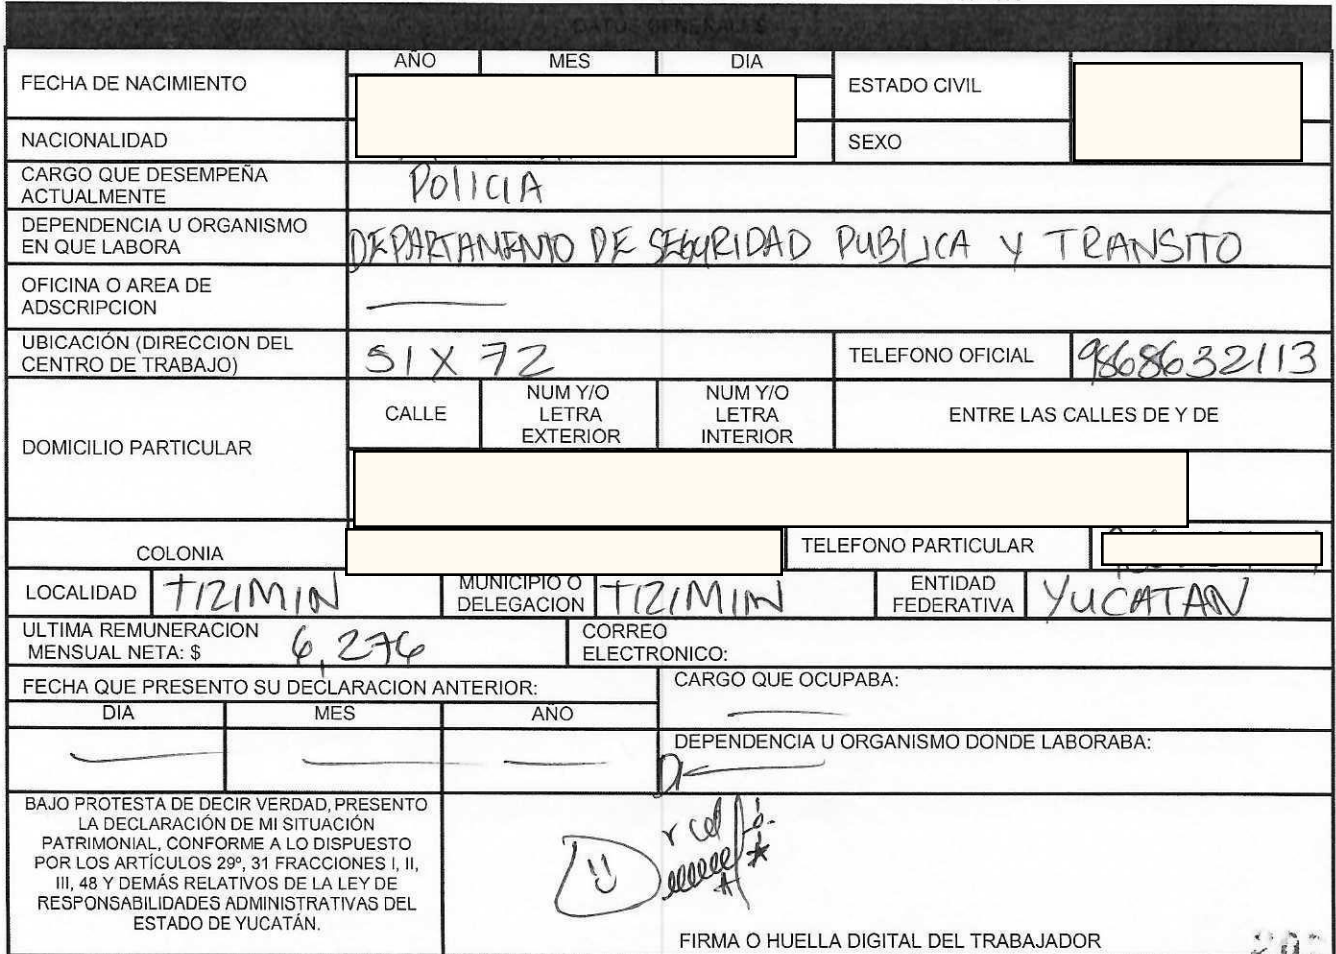 DATOS GENERALES
FECHA DE NACIMIENTO
AÑO MES DIA
ESTADO CIVIL
NACIONALIDAD
SEXO
CARGO QUE DESEMPEÑA
ACTUALMENTE
POLICIA
DEPENDENCIA U ORGANISMO
EN QUE LABORA
DEPARTAMENTO DE SEGURIDAD PUBLICA Y TRANSITO
OFICINA O AREA DE
ADSCRIPCION
UBICACIÓN (DIRECCION DEL
CENTRO DE TRABAJO)
51 X 72
TELEFONO OFICIAL
9868632113
DOMICILIO PARTICULAR
CALLE
NUM Y/O
LETRA
EXTERIOR
NUM Y/O
LETRA
INTERIOR
ENTRE LAS CALLES DE Y DE
COLONIA
TELEFONO PARTICULAR
LOCALIDAD
TIZIMIN
MUNICIPIO O
DELEGACION
TIZIMIN
ENTIDAD
FEDERATIVA
YUCATAN
ULTIMA REMUNERACION
MENSUAL NETA: $
6,276
CORREO
ELECTRONICO:
FECHA QUE PRESENTO SU DECLARACION ANTERIOR:
DIA MES AÑO
CARGO QUE OCUPABA:
DEPENDENCIA U ORGANISMO DONDE LABORABA:
BAJO PROTESTA DE DECIR VERDAD, PRESENTO
LA DECLARACIÓN DE MI SITUACIÓN
PATRIMONIAL, CONFORME A LO DISPUESTO
POR LOS ARTÍCULOS 29º, 31 FRACCIONES I, II,
III, 48 Y DEMÁS RELATIVOS DE LA LEY DE
RESPONSABILIDADES ADMINISTRATIVAS DEL
ESTADO DE YUCATÁN.
FIRMA O HUELLA DIGITAL DEL TRABAJADOR